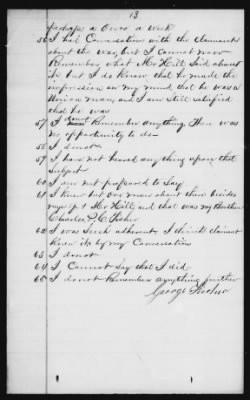 13
perhaps a Once a Week
56 I had Conversation with the claimant
about the war, but I Cannot now
Remember what Mr Hill Said about
it but I do Know that he made the
impression on my mind that he was a
Union man, and I am Still Satisfied
that he was
57 I dont Remember anything There was
no opportunity to do
58 I do not
59 I have not heard any thing upon that
Subject
60 I am not prepared to Say
61 I Knew but one man about there besides
myself & Mr Hill and that was my Brother
Charles P. C. Fisher
62 I was Such adherent I think claimant
Knew it by my Conversation
63 I do not
64 I Cannot Say that I did
65 I do not Remember anything further
George Fisher